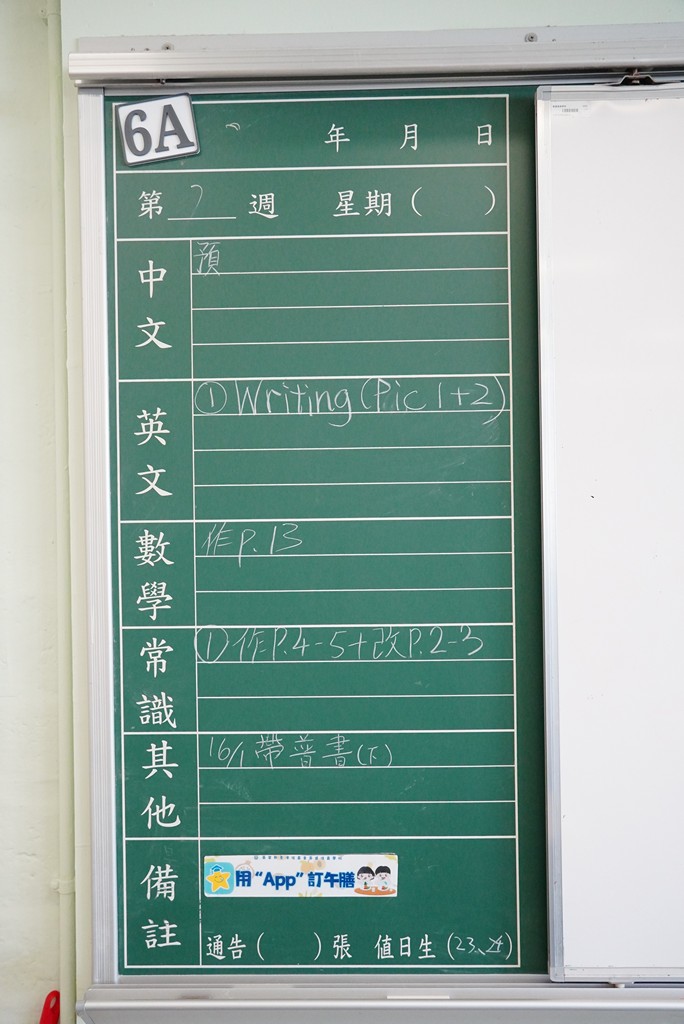 6A
年 月 日
第 7 週 星期( )
中文
預
英文
① Writing (Pic 1+2)
數學
作P.13
常識
① 作P.4-5+改P.2-3
其他
16/1 帶普書(下)
備註
用“App”訂午膳
通告( )張 值日生(23、24)